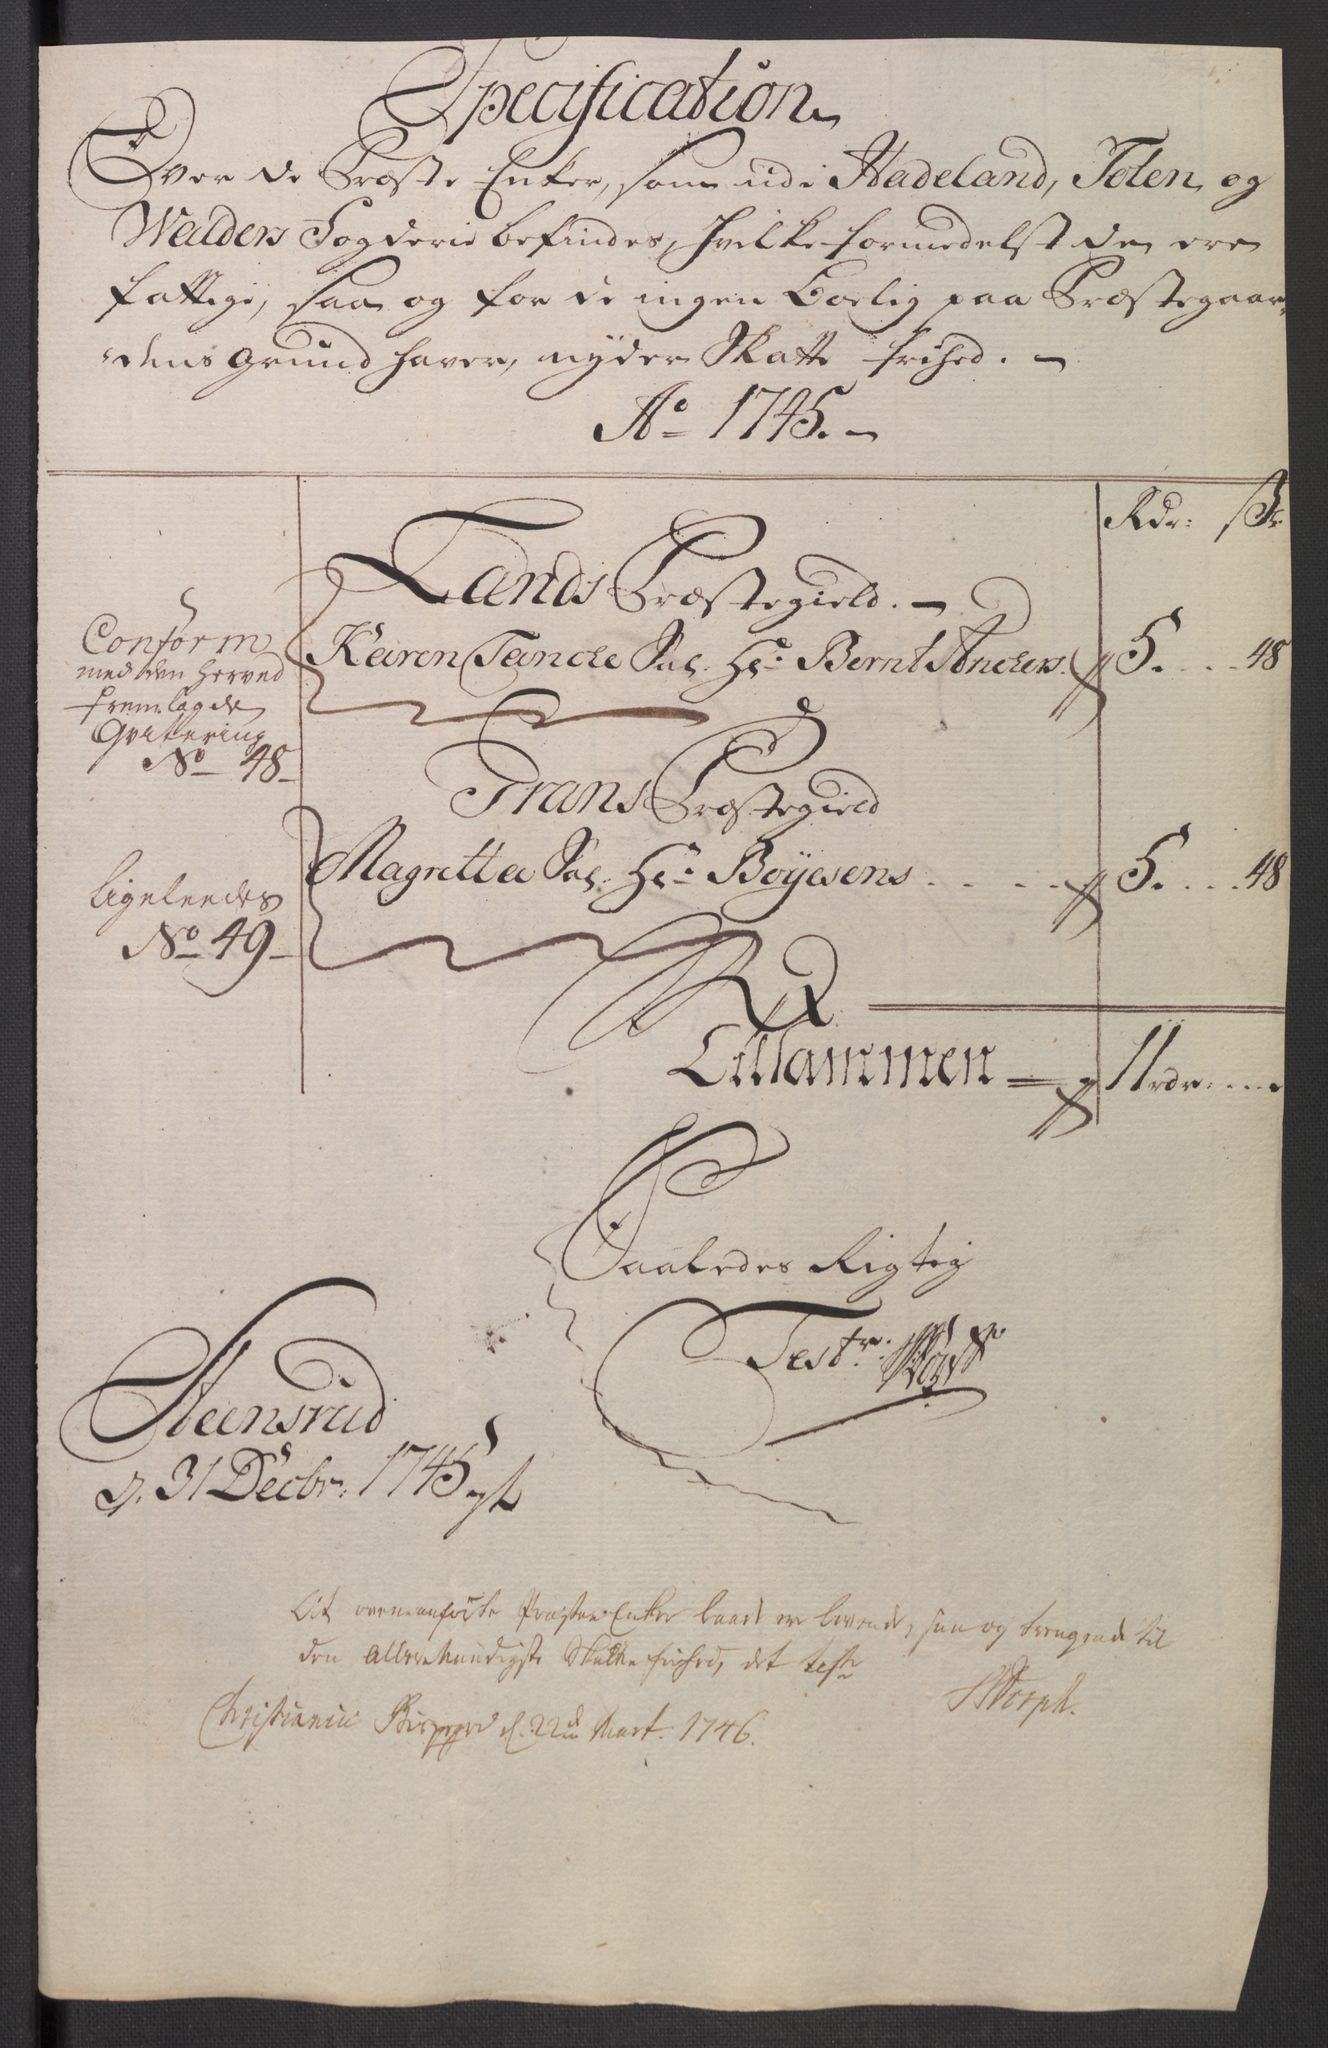 Specification
Over de Præste Enker, som udi Hadeland, Toten og
Walders Fogderie befindes, hvilke formedelst de ere
fattige, saa og for de ingen Boelig paa Præstegaar-
dens grund haver, nyder Skatte frihed. -
Ao 1745. -
Rdr: ß
Lands Præstegield. -
Conform
med den herved
fremlagde
Qvitering
No 48-
Karen Tanche Sal. Hr: Bernt Anchers. 5. . . . 48
Frans Præstegield
ligeleedes
No 49-
Magretta Sal. Hr: Boyesens . . . . . 5. . . . 48
Tillsammen = 11 rdr: . . . .
Saaledes Rigtig
Test:
Steensrud
d. 31 Decbr: 1745
At ovenanførte Præste Enker baade er levende, saa og trengende til
den allernaadigste Skatte frihed, det teste
Christiania Bispegrd d. 22 Mart. 1746.